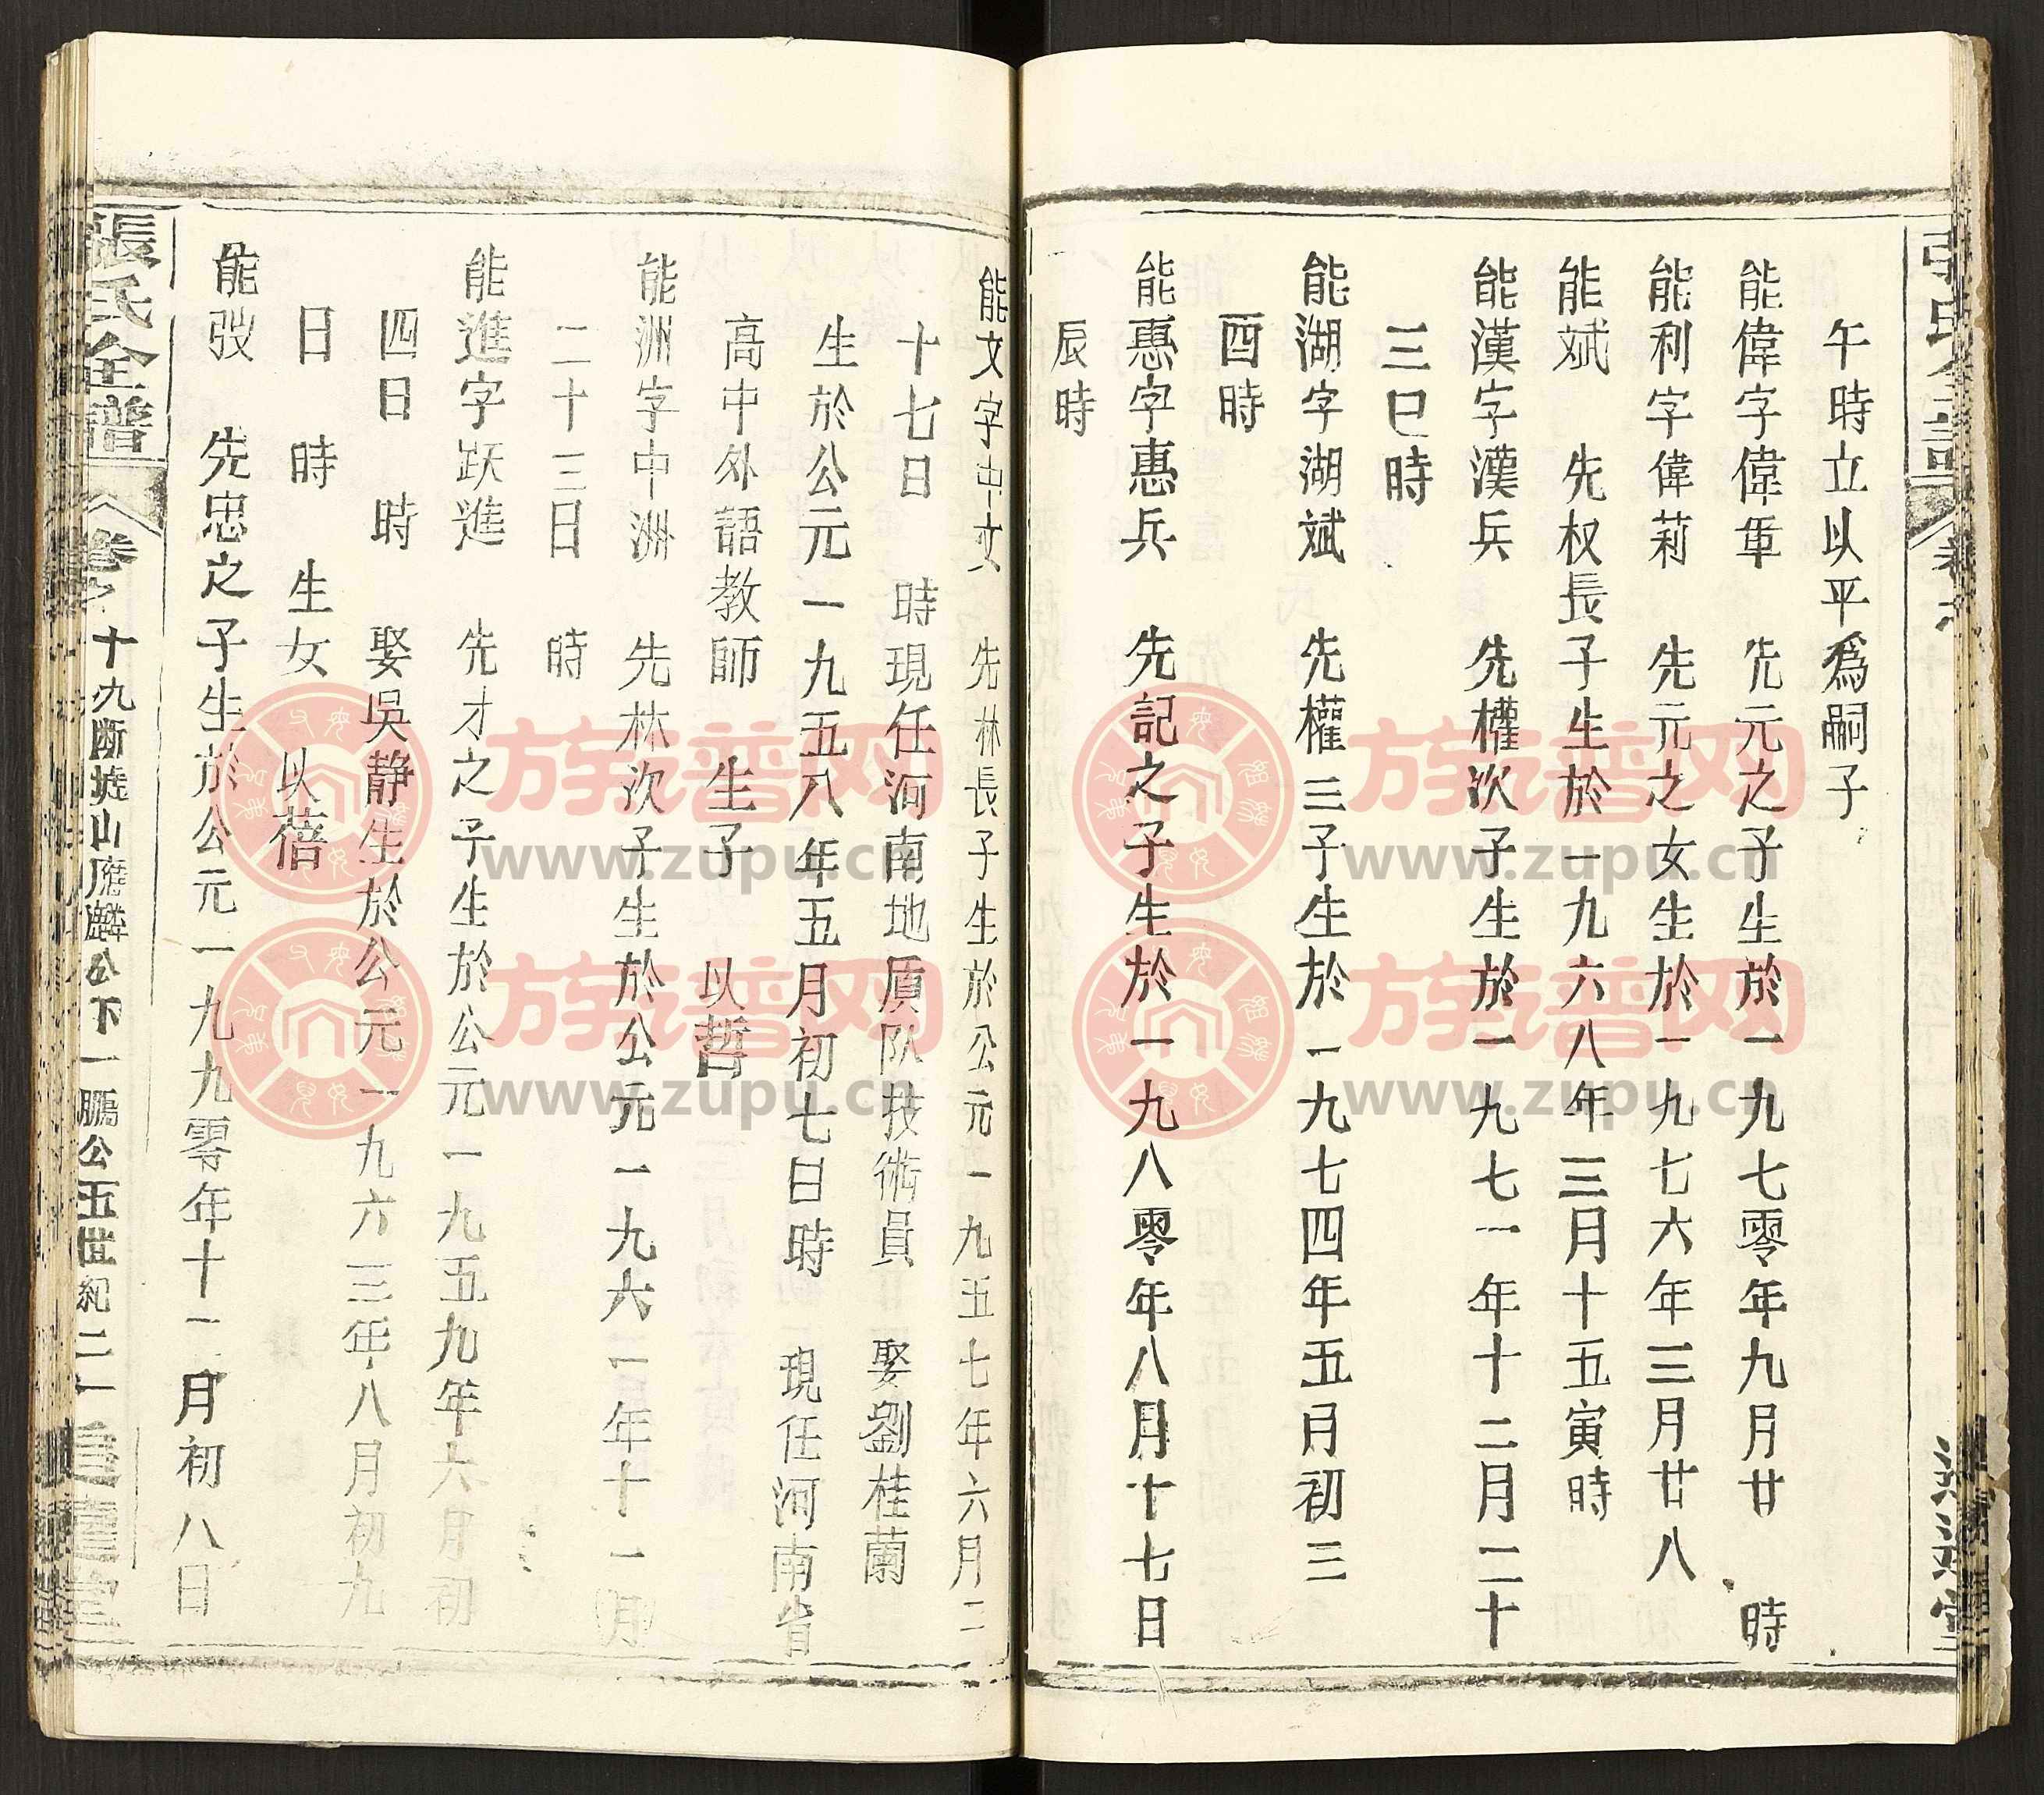 午時立以平為嗣子
能偉字偉軍　先元之子生於一九七零年九月廿　時
能利字偉莉　先元之女生於一九七六年三月廿八
能斌　先权長子生於一九六八年三月十五寅時
能漢字漢兵　先權次子生於一九七一年十二月二十
三巳時
能湖字湖斌　先權三子生於一九七四年五月初三
酉時
能惠字惠兵　先記之子生於一九八零年八月十七日
辰時
能文字中文　先林長子生於公元一九五七年六月二
十七日　時現任河南地質队技術員　娶劉桂蘭
生於公元一九五八年五月初七日時　現任河南省
高中外語教師　生子　以哲
能洲字中洲　先林次子生於公元一九六一年十一月
二十三日　時
能進字跃進　先才之子生於公元一九五九年六月初
四日　時　娶吳静生於公元一九六三年八月初九
日　時　生女　以蓓
能弢　先忠之子生於公元一九九零年十二月初八日
張氏全譜
卷之
十九断 山應麟公下一鵬公五世紀二一
追遠堂
族谱网
www.zupu.cn
族谱网
www.zupu.cn
族谱网
www.zupu.cn
族谱网
www.zupu.cn